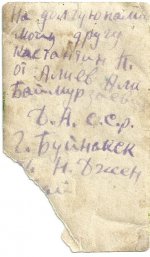 На долгую памя
моему другу
Кастантин П.
от Алиев Али
Баймурзаев
Д. А. С. С. Р.
г. Буйнакск
Н. Джен